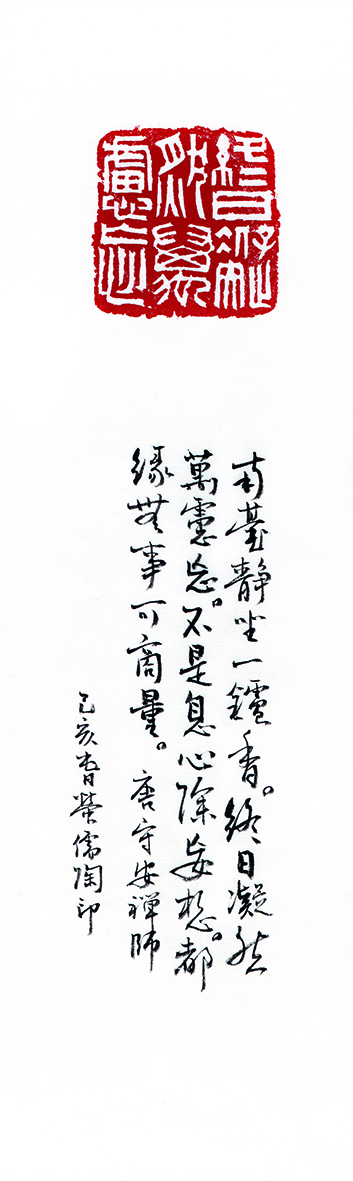 終日凝
然萬
慮忘
南臺靜坐一鑪香。終日凝然
萬慮忘。不是息心除妄想。都
緣無事可商量。唐守安禪師
己亥旾榮儒陶印